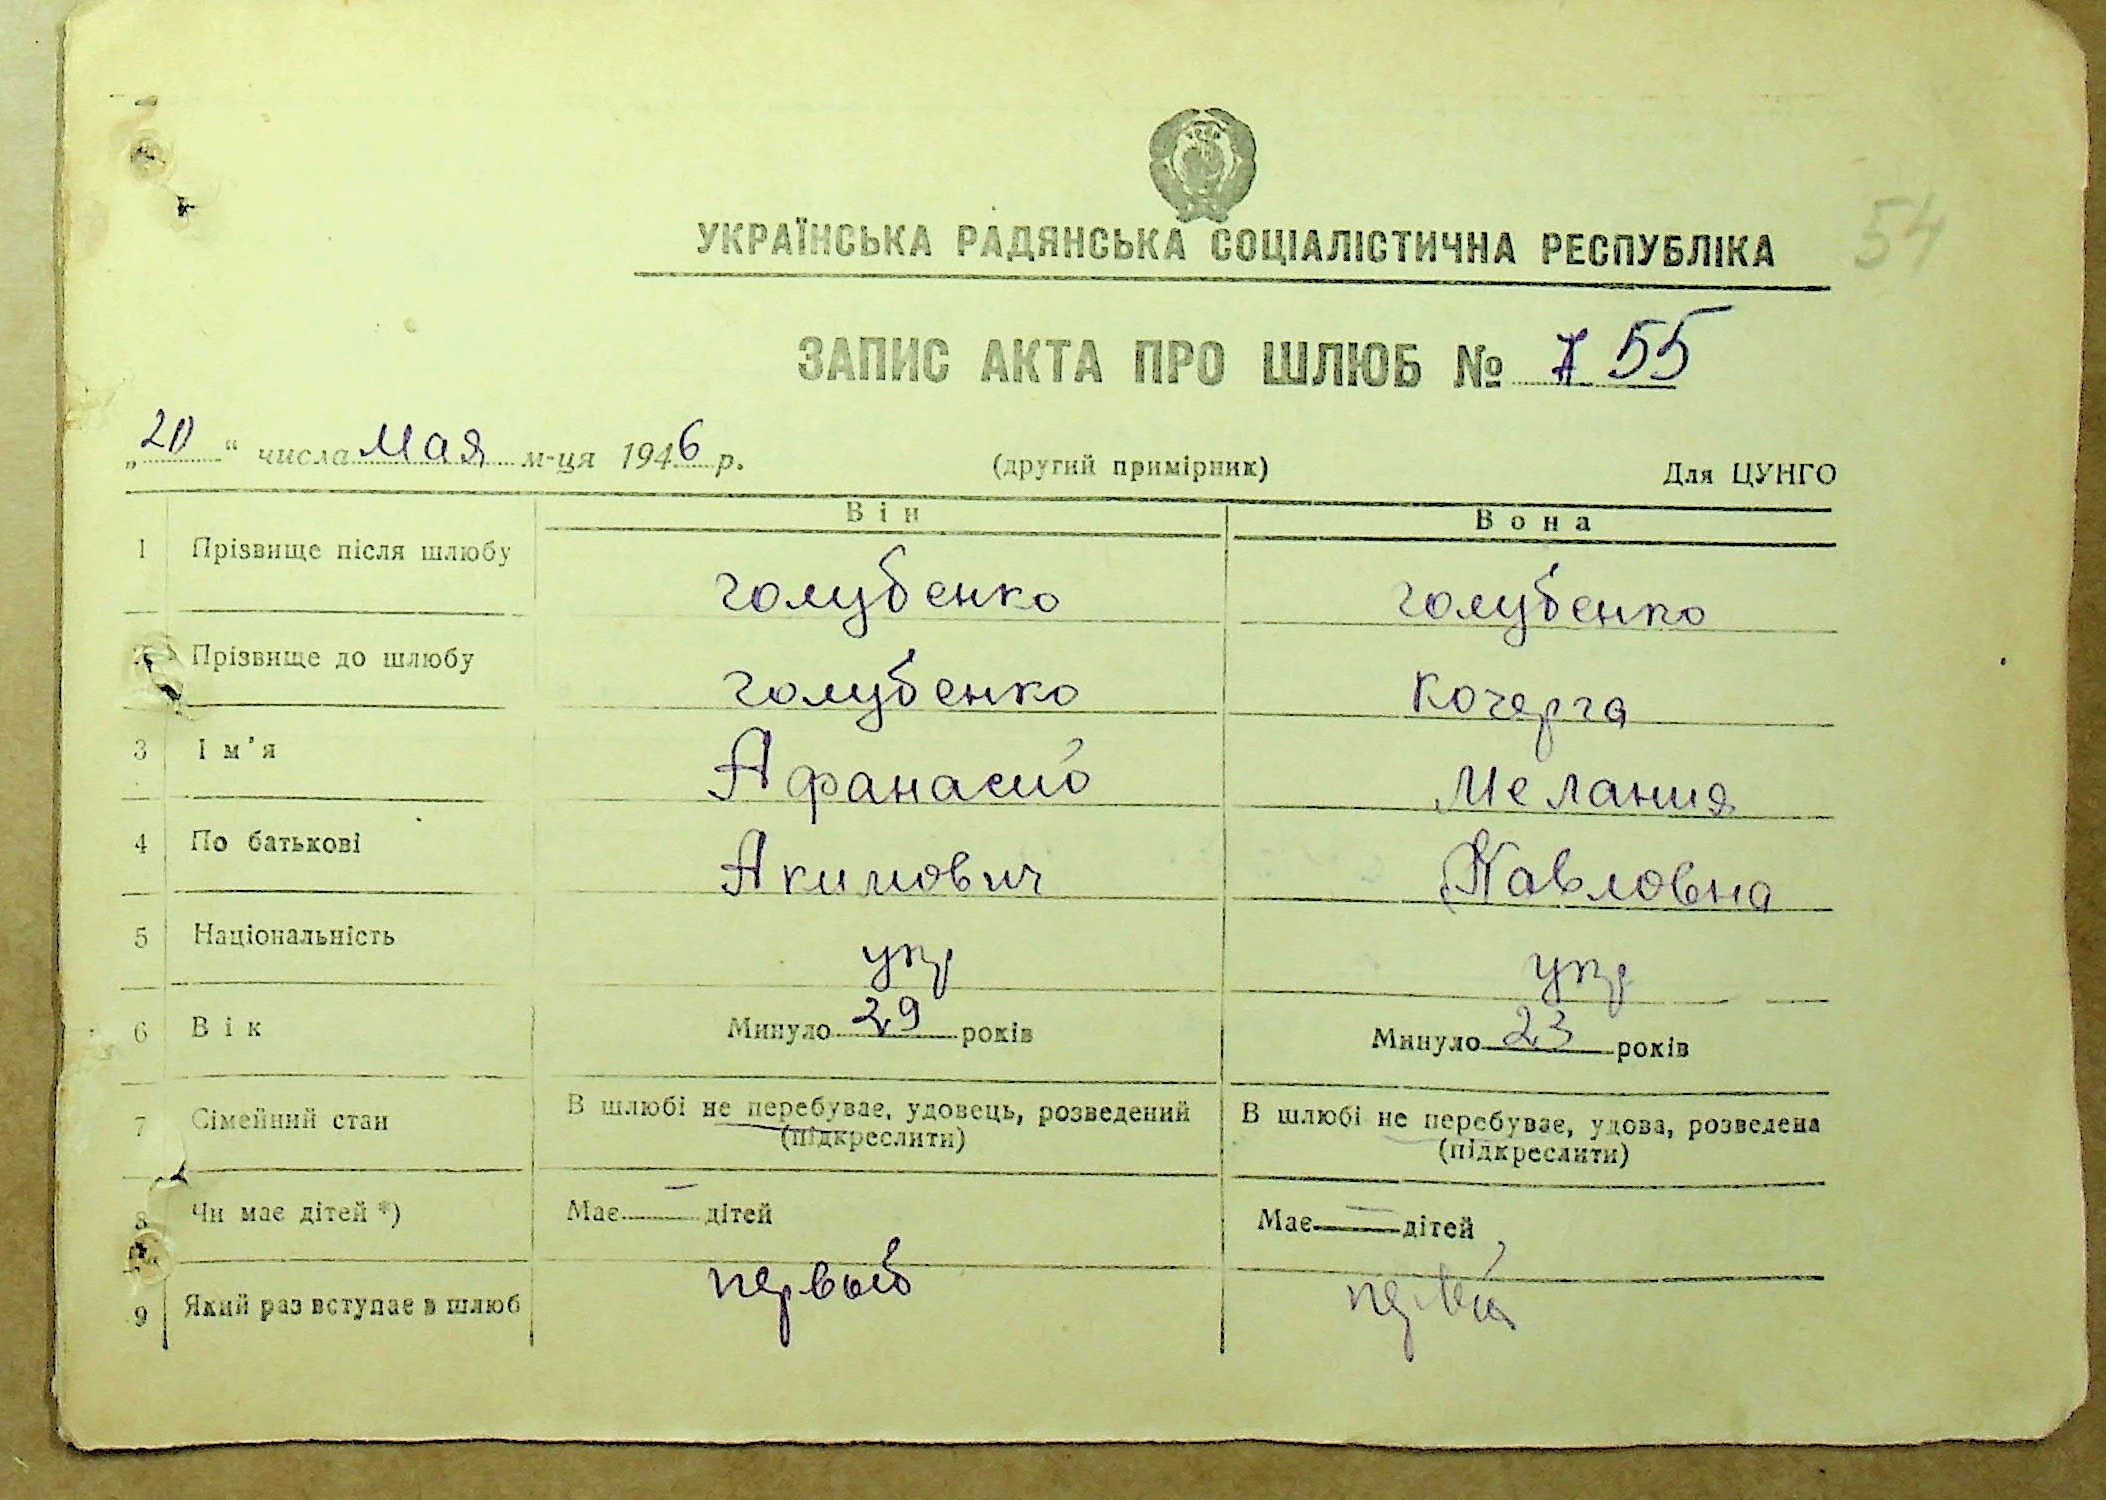 54
УКРАЇНСЬКА РАДЯНСЬКА СОЦІАЛІСТИЧНА РЕСПУБЛІКА
ЗАПИС АКТА ПРО ШЛЮБ № 55
„20“ числа Мая м-ця 1946 р. (другий примірник) Для ЦУНГО
Він Вона
1 Прізвище після шлюбу голубенко голубенко
2 Прізвище до шлюбу голубенко Кочерга
3 Ім'я Афанасий Мелания
4 По батькові Акимович Павловна
5 Національність укр укр
6 Вік Минуло 29 років Минуло 23 років
7 Сімейний стан В шлюбі не перебуває, удовець, розведений В шлюбі не перебуває, удова, розведена
(підкреслити) (підкреслити)
8 Чи має дітей *) Має — дітей Має — дітей
9 Який раз вступає в шлюб первый первый